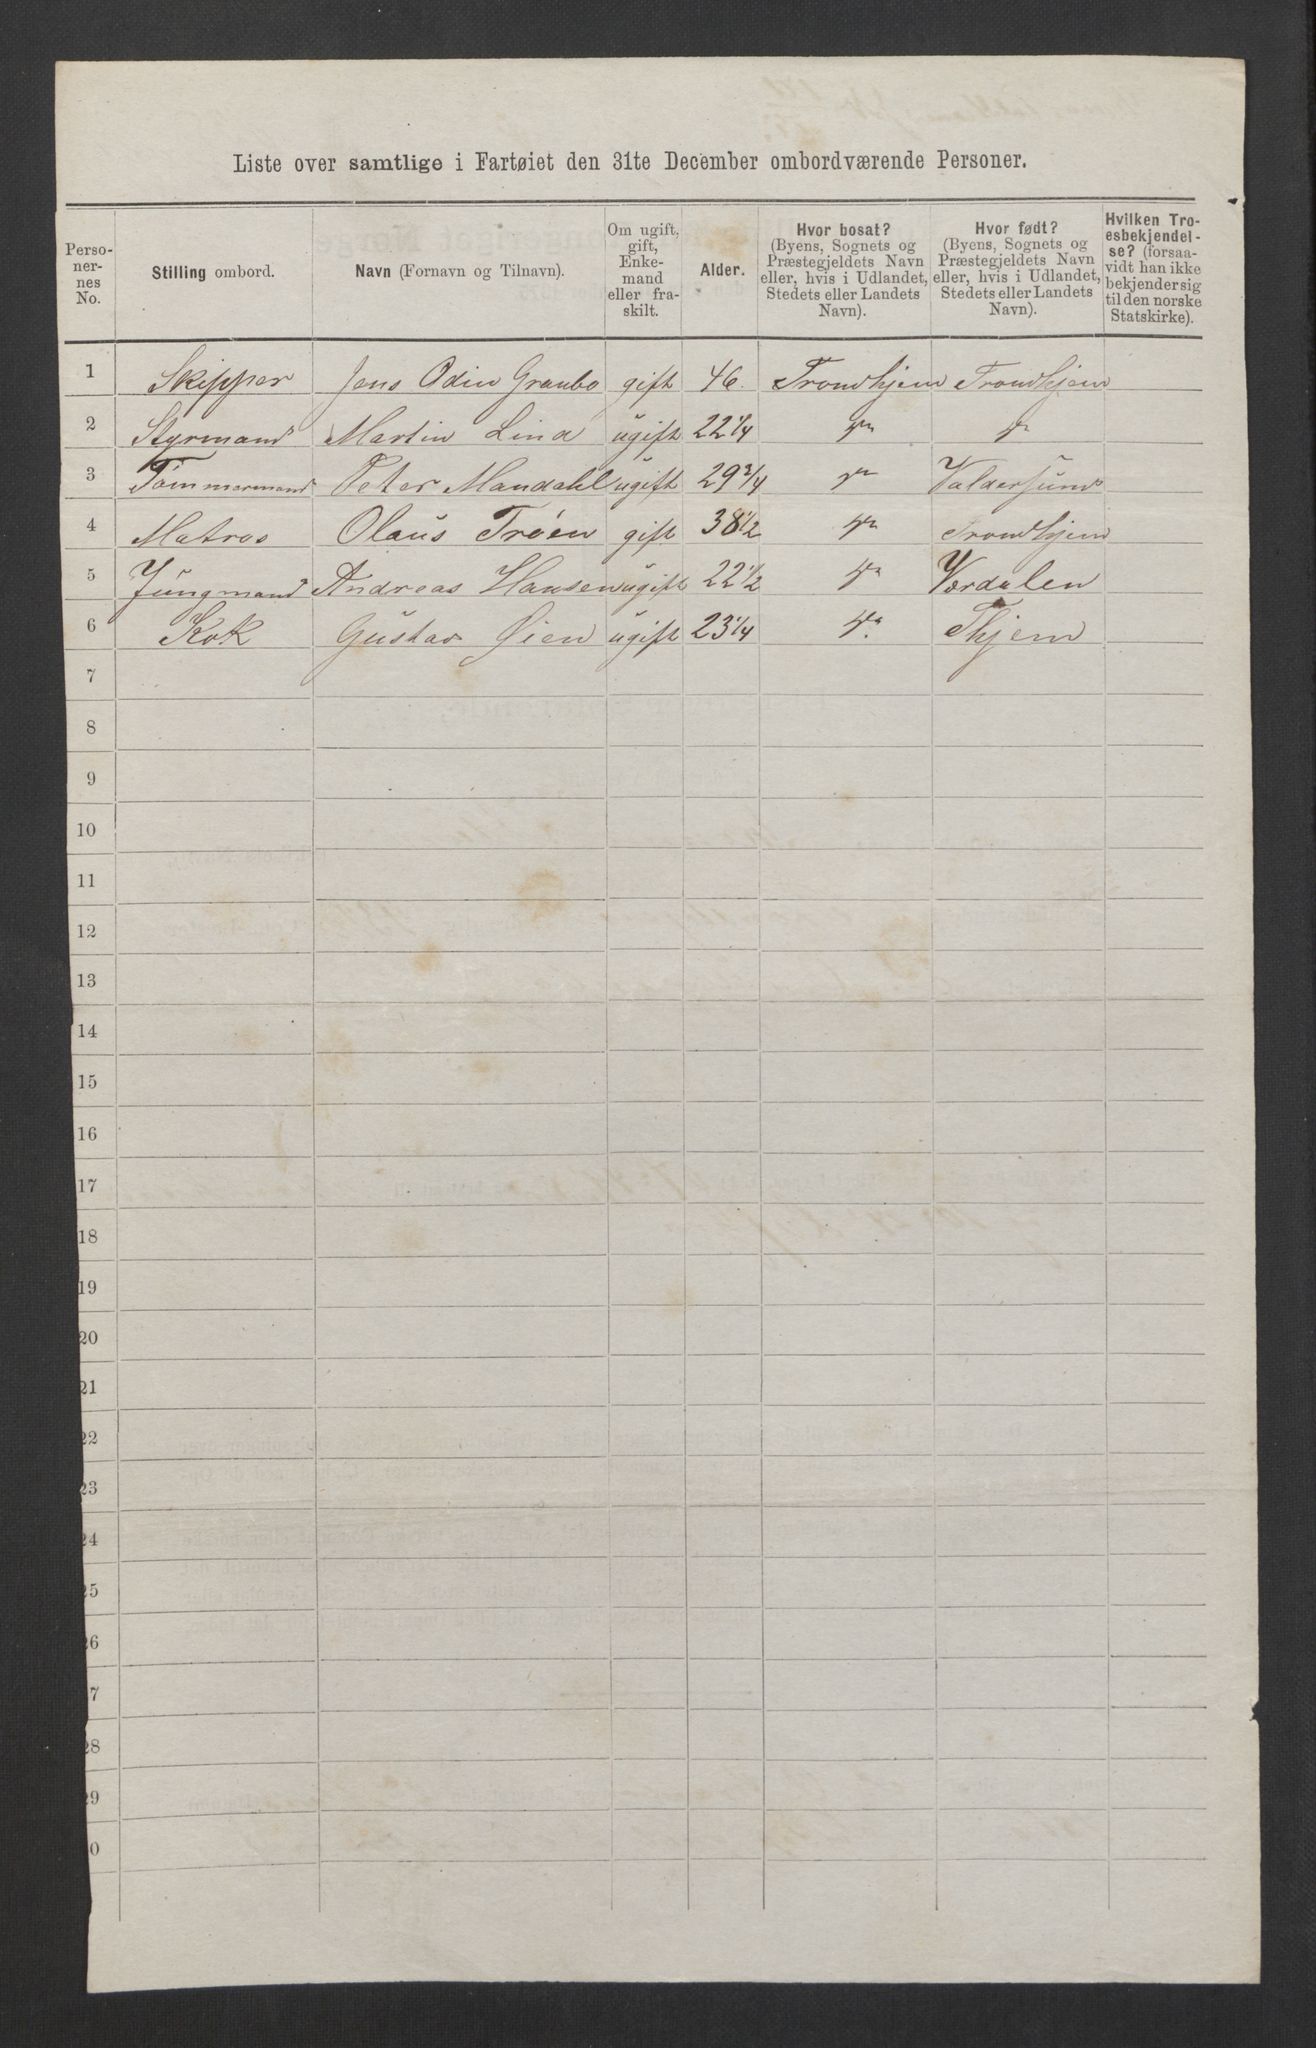 Liste over samtlige i Fartøiet den 31te December ombordværende Personer.
Perso-
ner-
nes
No.
Stilling ombord.
Navn (Fornavn og Tilnavn).
Om ugift,
gift,
Enke-
mand
eller fra-
skilt.
Alder.
Hvor bosat?
(Byens, Sognets og
Præstegjeldets Navn
eller, hvis i Udlandet,
Stedets eller Landets
Navn).
Hvor født?
(Byens, Sognets og
Præstegjeldets Navn
eller, hvis i Udlandet,
Stedets eller Landets
Navn).
Hvilken Tro-
esbekjendel-
se? (forsaa-
vidt han ikke
bekjender sig
til den norske
Statskirke).
1 Skipper Jens Odin gift 46. Trondhjem Trondhjem
2 Styrmand Martin Lind ugift 22 1/4 do do
3 Tömmermand Peter Mandahl ugift 29 3/4 do Valdersund
4 Matros Olaus Tröen gift 38 1/2 do Trondhjem
5 Jungmand Andreas Hansen ugift 22 1/2 do Værdalen
6 Kok Gustav Øien ugift 23 1/4 do Thjem
7
8
9
10
11
12
13
14
15
16
17
18
19
20
21
22
23
24
25
26
7
28
29
0